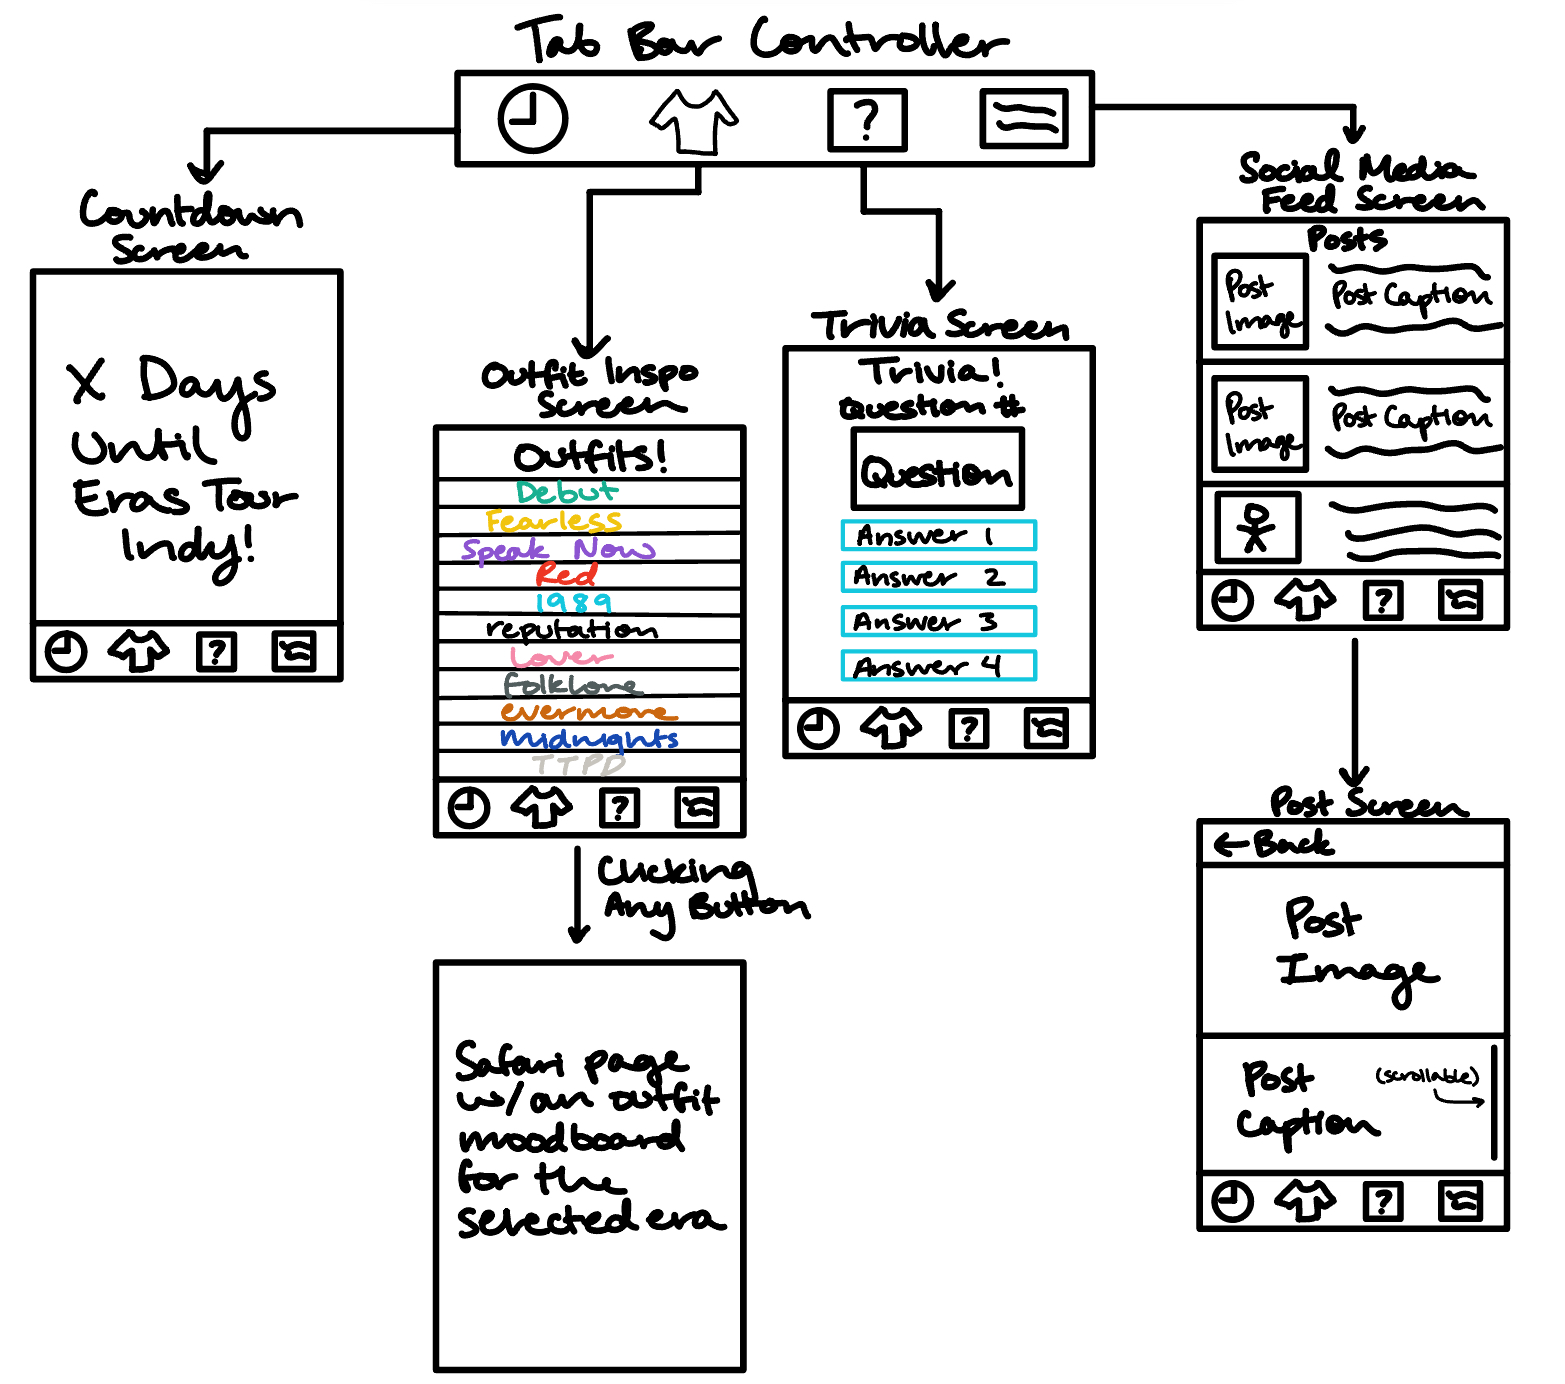 Tab Bar Controller
?
Countdown
Screen
X Days
Until
Eras Tour
Indy!
?
Outfit Inspo
Screen
Outfits!
Debut
Fearless
Speak Now
Red
1989
reputation
Lover
folklore
evermore
midnights
TTPD
?
Clicking
Any Button
Safari page
w/an outfit
moodboard
for the
selected era
Trivia Screen
Trivia!
Question #
Question
Answer 1
Answer 2
Answer 3
Answer 4
?
Social Media
Feed Screen
Posts
Post
Image
Post Caption
Post
Image
Post Caption
?
Post Screen
← Back
Post
Image
Post
Caption
(scrollable)
?